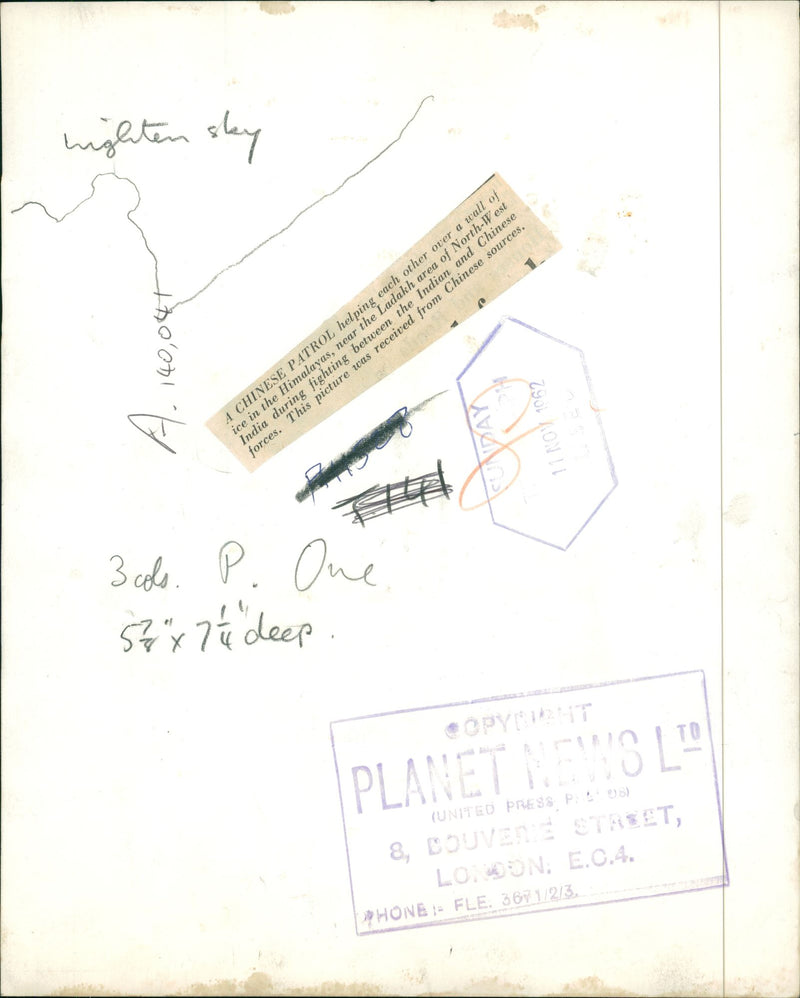 sky
A. 140,041
A CHINESE PATROL helping each other over a wall of
ice in the Himalayas, near the Ladakh area of North-West
India during fighting between the Indian and Chinese
forces. This picture was received from Chinese sources.
SUNDAY
11 NOV 1962
3 cols. P. One
5⅞" x 7¼" deep.
COPYRIGHT
PLANET NEWS LTD
(UNITED PRESS
8, BOUVERIE STREET,
LONDON. E.C.4.
PHONE:- FLE. 3671/2/3.